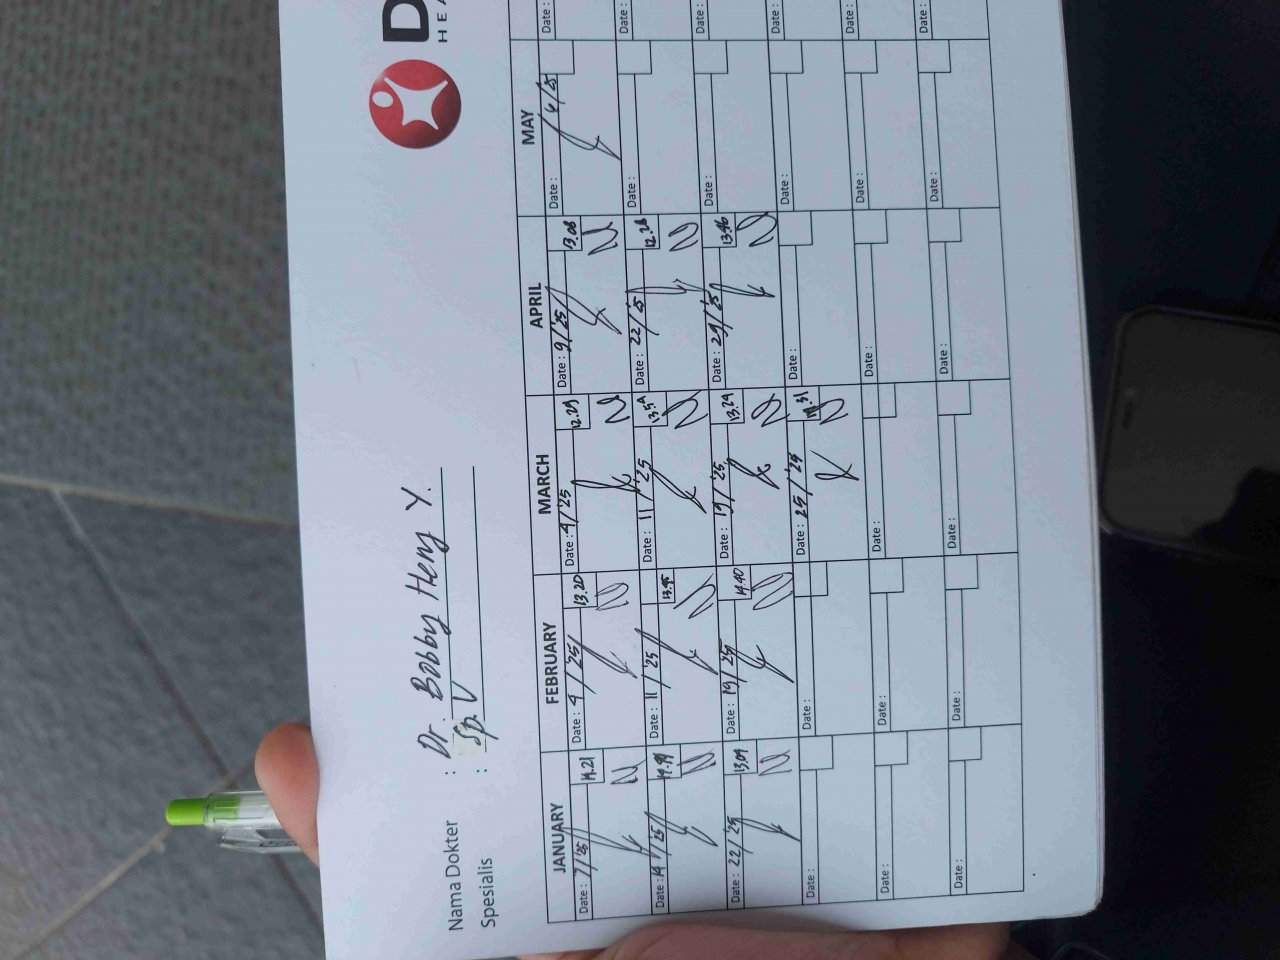 D
HEA
Nama Dokter : Dr. Bobby Henry Y.
Spesialis : Sp. V
JANUARY FEBRUARY MARCH APRIL MAY
Date : 7/'25 14.21 Date : 4/'25 13.20 Date : 4/'25 12.29 Date : 9/'25 13.08 Date : 6/'25 Date :
Date : 14/'25 Date : 11/'25 Date : 11/'25 Date : 22/'25 12.28 Date : Date :
Date : 22/'25 13.09 Date : 19/'25 14.40 Date : 19/'25 13.29 Date : 29/'25 13.46 Date : Date :
Date : Date : Date : 25/'25 Date : Date : Date :
Date : Date : Date : Date : Date : Date :
Date : Date : Date : Date : Date : Date :